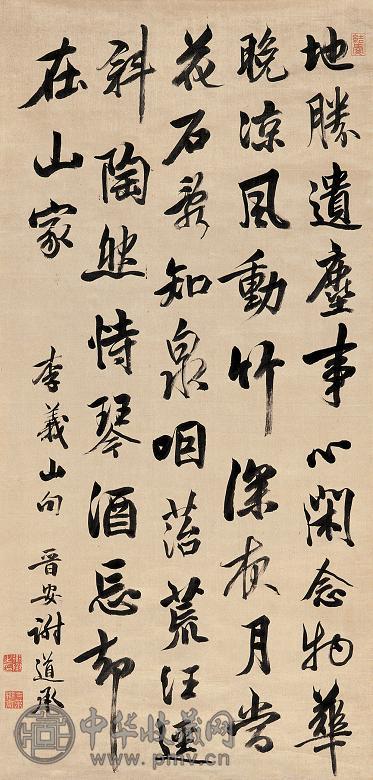 地勝遺塵事心閑念物華
晚涼風動竹深夜月當
花石亂知泉咽苔荒任逕
斜陶然恃琴酒忘却
在山家
李義山句 晉安謝道承
中华收藏网
www.pmv.cn